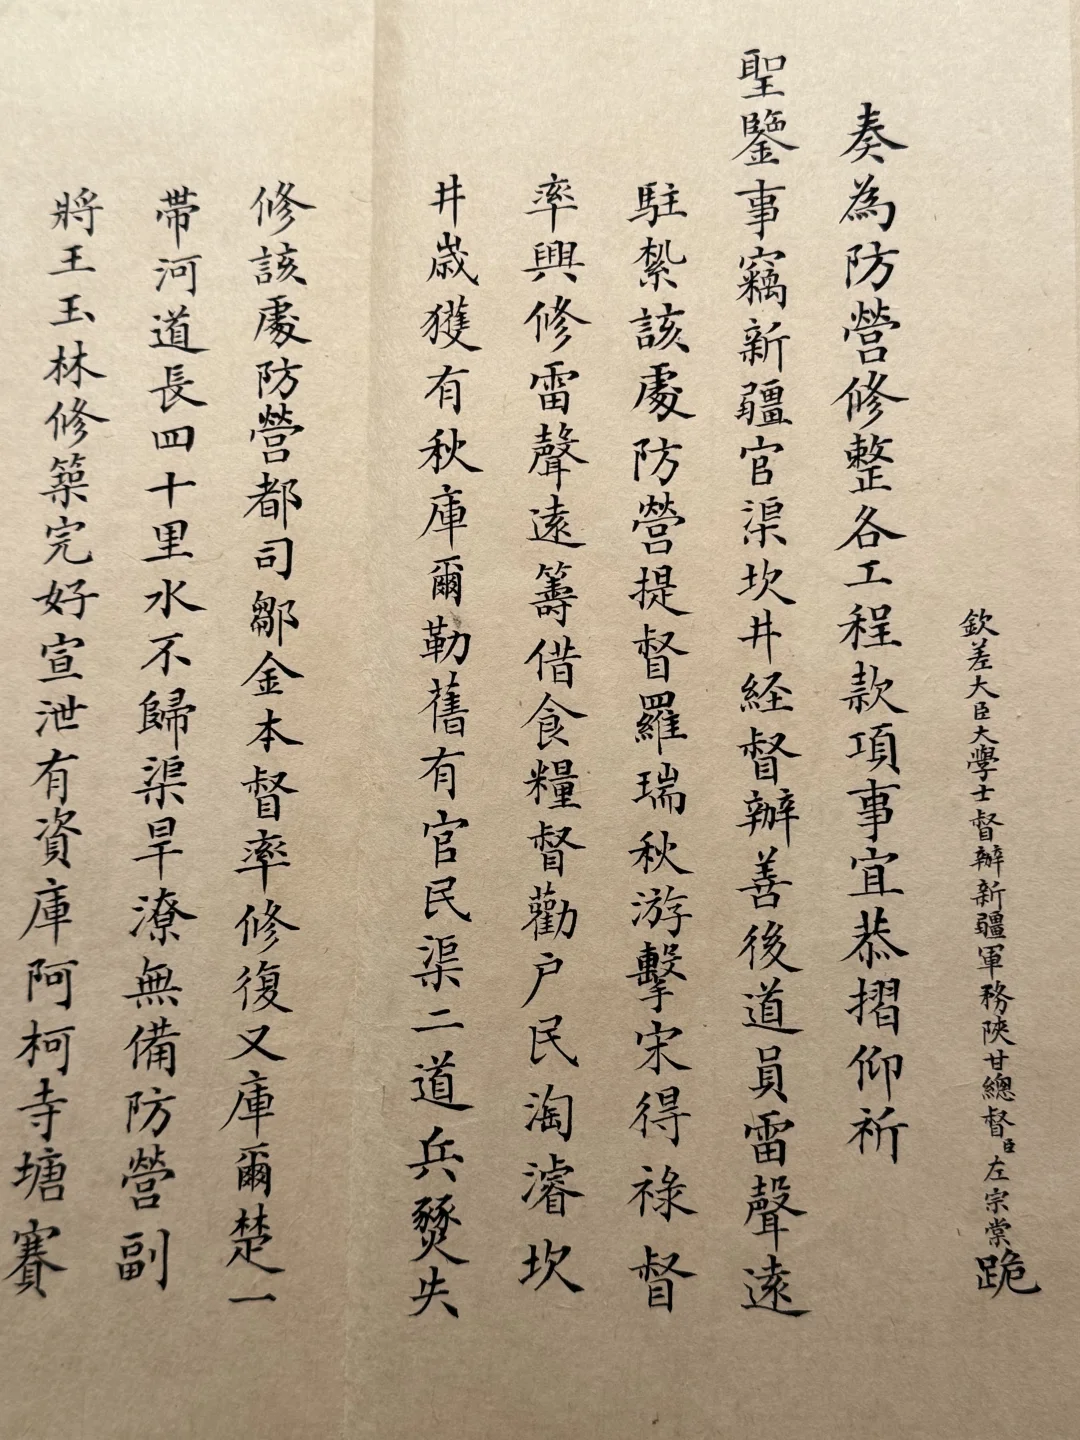 欽差大臣大學士督辦新疆軍務陝甘總督臣左宗棠跪
奏為防營修整各工程款項事宜恭摺仰祈
聖鑒事竊新疆官渠坎井経督辦善後道員雷聲遠
駐紮該處防營提督羅瑞秋游擊宋得祿督
率興修雷聲遠籌借食糧督勸户民淘濬坎
井歲獲有秋庫爾勒舊有官民渠二道兵燹失
修該處防營都司鄒金本督率修復又庫爾楚一
帶河道長四十里水不歸渠旱潦無備防營副
將王玉林修築完好宣泄有資庫阿柯寺塘賽